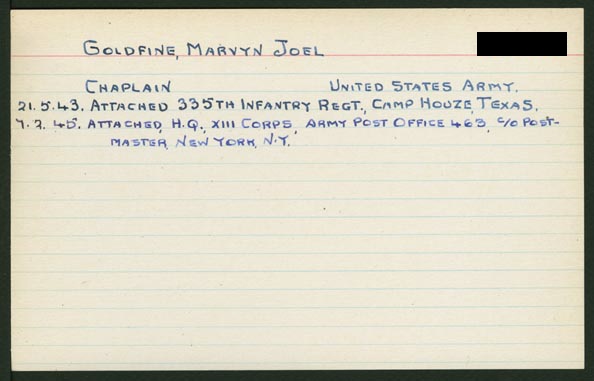 GOLDFINE, MARVYN JOEL
CHAPLAIN UNITED STATES ARMY.
21.5.43. ATTACHED 335TH INFANTRY REGT., CAMP HOUZE, TEXAS.
7.2.45. ATTACHED, H.Q., XIII CORPS, ARMY POST OFFICE 463, C/O POST-
MASTER, NEW YORK, N.Y.